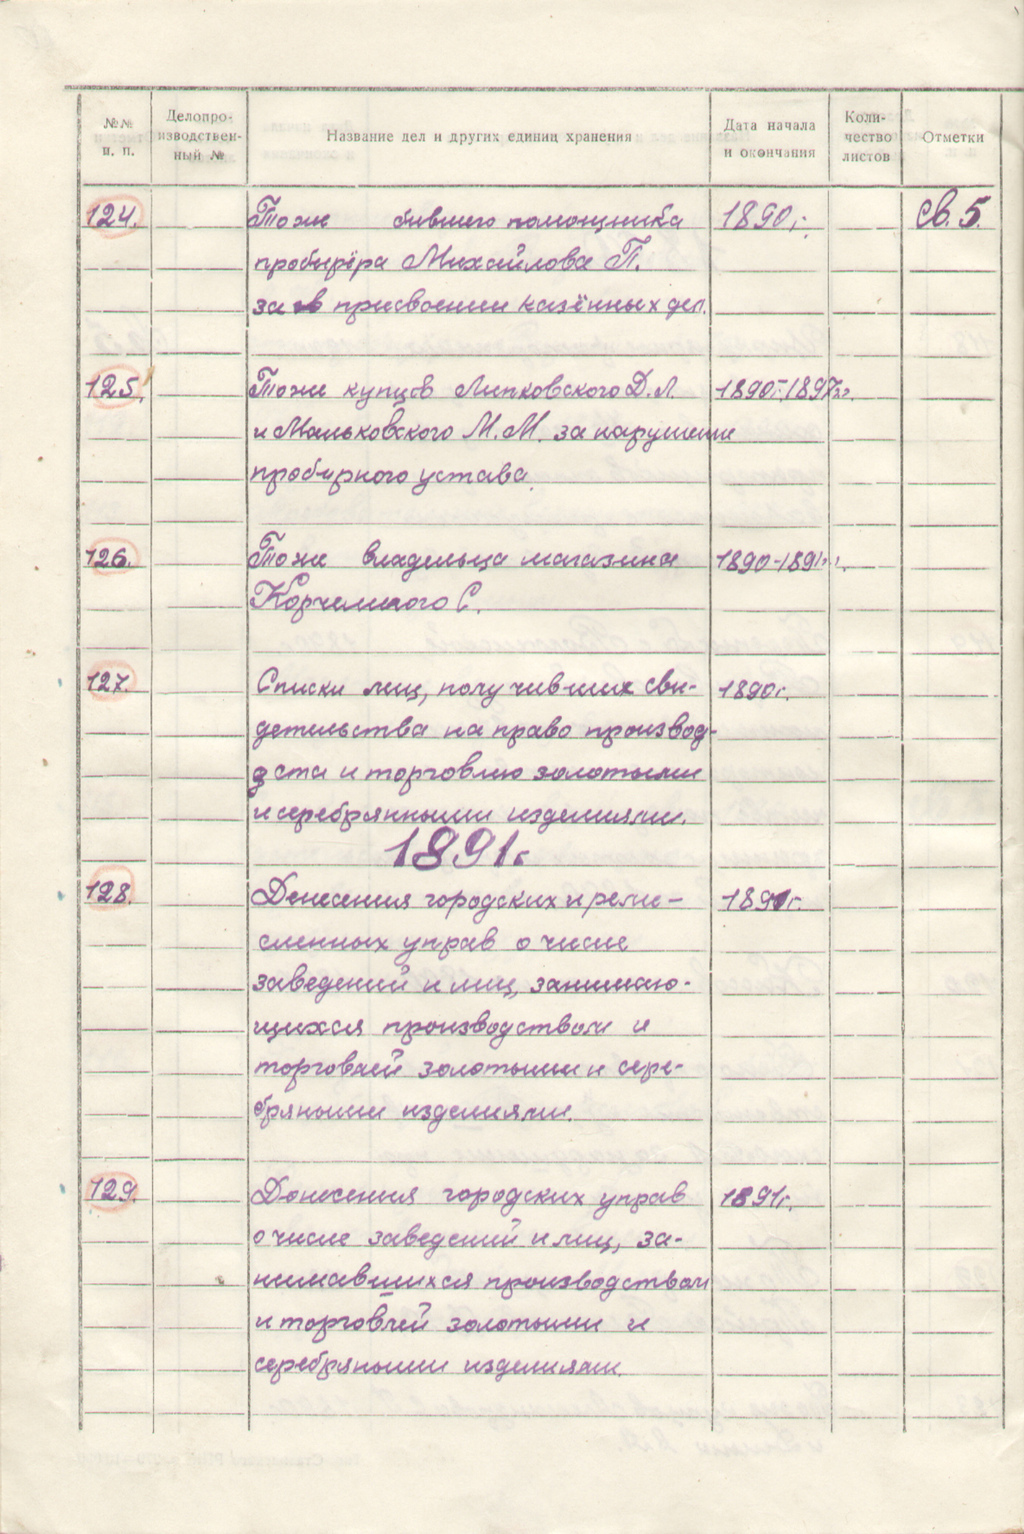 №№ п. п.
Делопро-
изводствен-
ный №
Название дел и других единиц хранения
Дата начала
и окончания
Коли-
чество
листов
Отметки
124. Тоже бывшего помощника 1890 г. св. 5.
пробирёра Михайлова П.
за в присвоении казённых ден.
125. Тоже купцов Липковского Д.Л. 1890г.-1897гг.
и Мальковского М.М. за нарушение
пробирного устава.
126. Тоже владельца магазина 1890-1891гг.
Корчемного С.
127. Списки лиц, получивших сви- 1890г.
детельства на право производ-
дста и торговлю золотыми
и серебрянными изделиями.
1891г
128. Денесения городских и реме- 1891г.
сленных управ о числе
заведений и лиц, занимаю-
щихся производством и
торговлей золотыми и сере-
бряными изделиями.
129. Донесения городских управ 1891г.
о числе заведений и лиц, за-
нимавшихся производством
и торговлей золотыми и
серебряными изделиями.